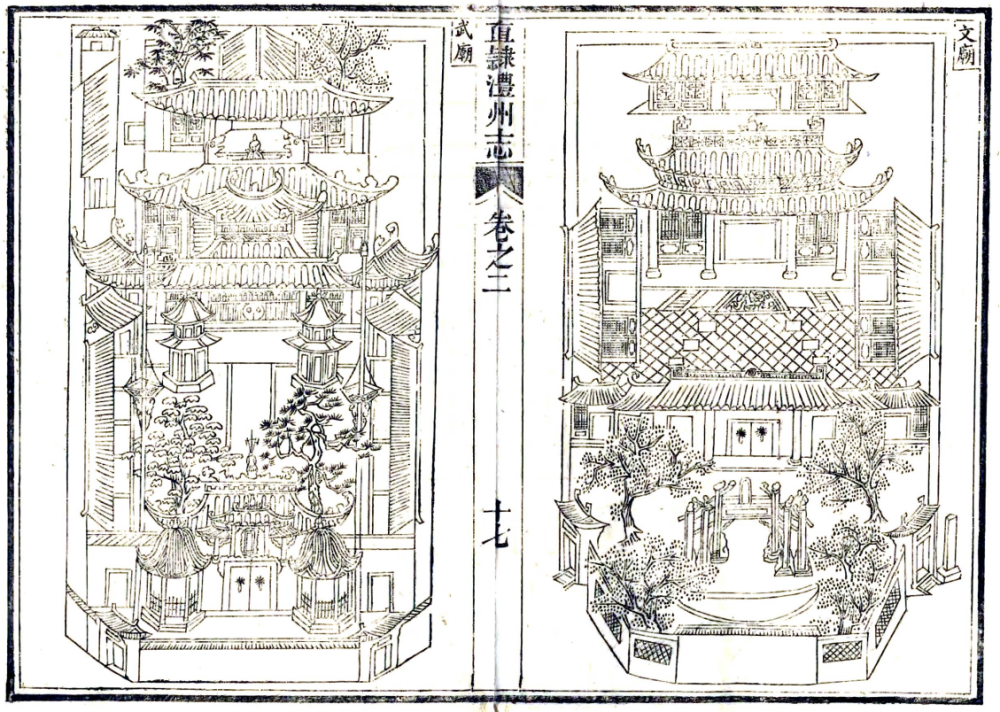 文廟
直隸澧州志
卷之二
十七
武廟